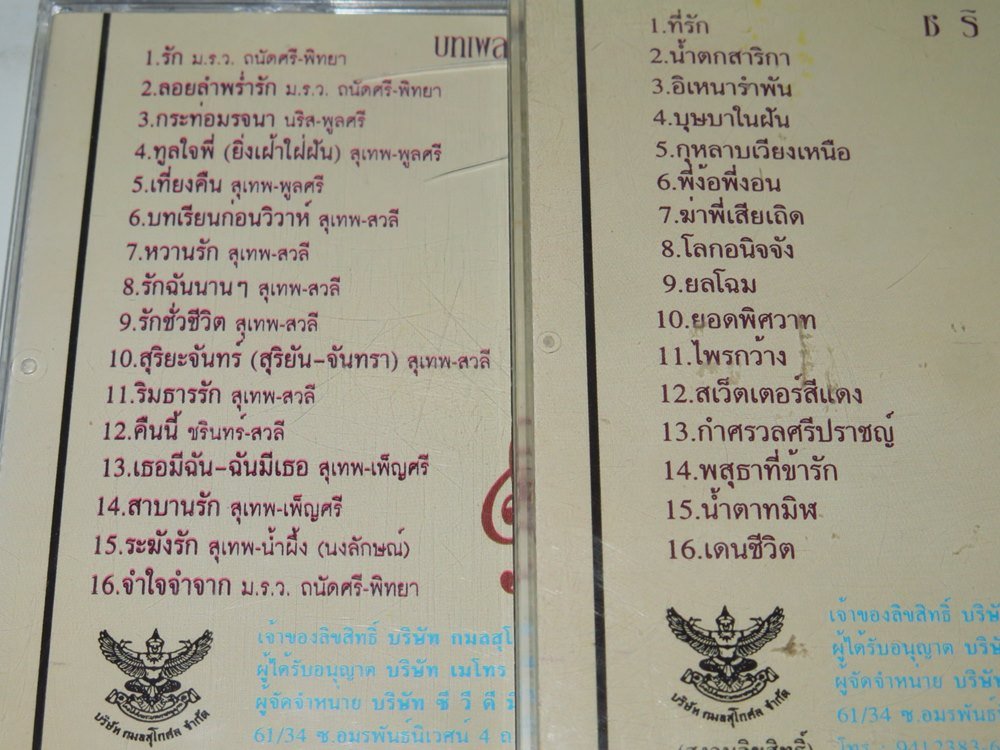 บทเพล
1.รัก ม.ร.ว. ถนัดศรี-พิทยา
2.ลอยลำพร่ำรัก ม.ร.ว. ถนัดศรี-พิทยา
3.กระท่อมรจนา นริส-พูลศรี
4.ทูลใจพี่ (ยิ่งเฝ้าใฝ่ฝัน) สุเทพ-พูลศรี
5.เที่ยงคืน สุเทพ-พูลศรี
6.บทเรียนก่อนวิวาห์ สุเทพ-สวลี
7.หวานรัก สุเทพ-สวลี
8.รักฉันนานๆ สุเทพ-สวลี
9.รักชั่วชีวิต สุเทพ-สวลี
10.สุริยะจันทร์ (สุริยัน-จันทรา) สุเทพ-สวลี
11.ริมธารรัก สุเทพ-สวลี
12.คืนนี้ ชรินทร์-สวลี
13.เธอมีฉัน-ฉันมีเธอ สุเทพ-เพ็ญศรี
14.สาบานรัก สุเทพ-เพ็ญศรี
15.ระฆังรัก สุเทพ-น้ำผึ้ง (นงลักษณ์)
16.จำใจจำจาก ม.ร.ว. ถนัดศรี-พิทยา
บริษัท กมลสุโกศล จำกัด
เจ้าของลิขสิทธิ์ บริษัท กมลสุโ
ผู้ได้รับอนุญาต บริษัท เมโทร
ผู้จัดจำหน่าย บริษัท ซี วี ดี
61/34 ซ.อมรพันธ์นิเวศน์ 4 ถ
ช ริ
1.ที่รัก
2.น้ำตกสาริกา
3.อิเหนารำพัน
4.บุษบาในฝัน
5.กุหลาบเวียงเหนือ
6.พี่ง้อพี่งอน
7.ฆ่าพี่เสียเถิด
8.โลกอนิจจัง
9.ยลโฉม
10.ยอดพิศวาท
11.ไพรกว้าง
12.สเว็ตเตอร์สีแดง
13.กำศรวลศรีปราชญ์
14.พสุธาที่ข้ารัก
15.น้ำตาทมิฬ
16.เดนชีวิต
บริษัท กมลสุโกศล จำกัด
(สงวนลิขสิทธิ์)
เจ้าของลิขสิทธิ์ บริษั
ผู้ได้รับอนุญาต บริษั
ผู้จัดจำหน่าย บริษัท
61/34 ซ.อมรพันธ์
โทร. 9412383-4